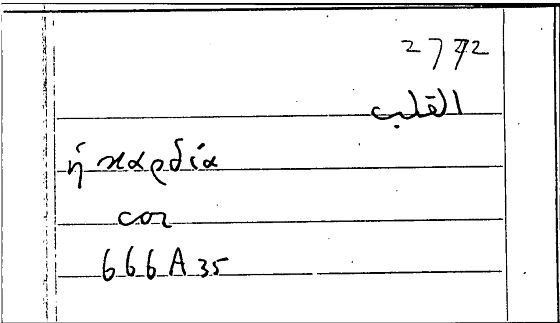 2772
القلب
ἡ καρδία
cor
666A35